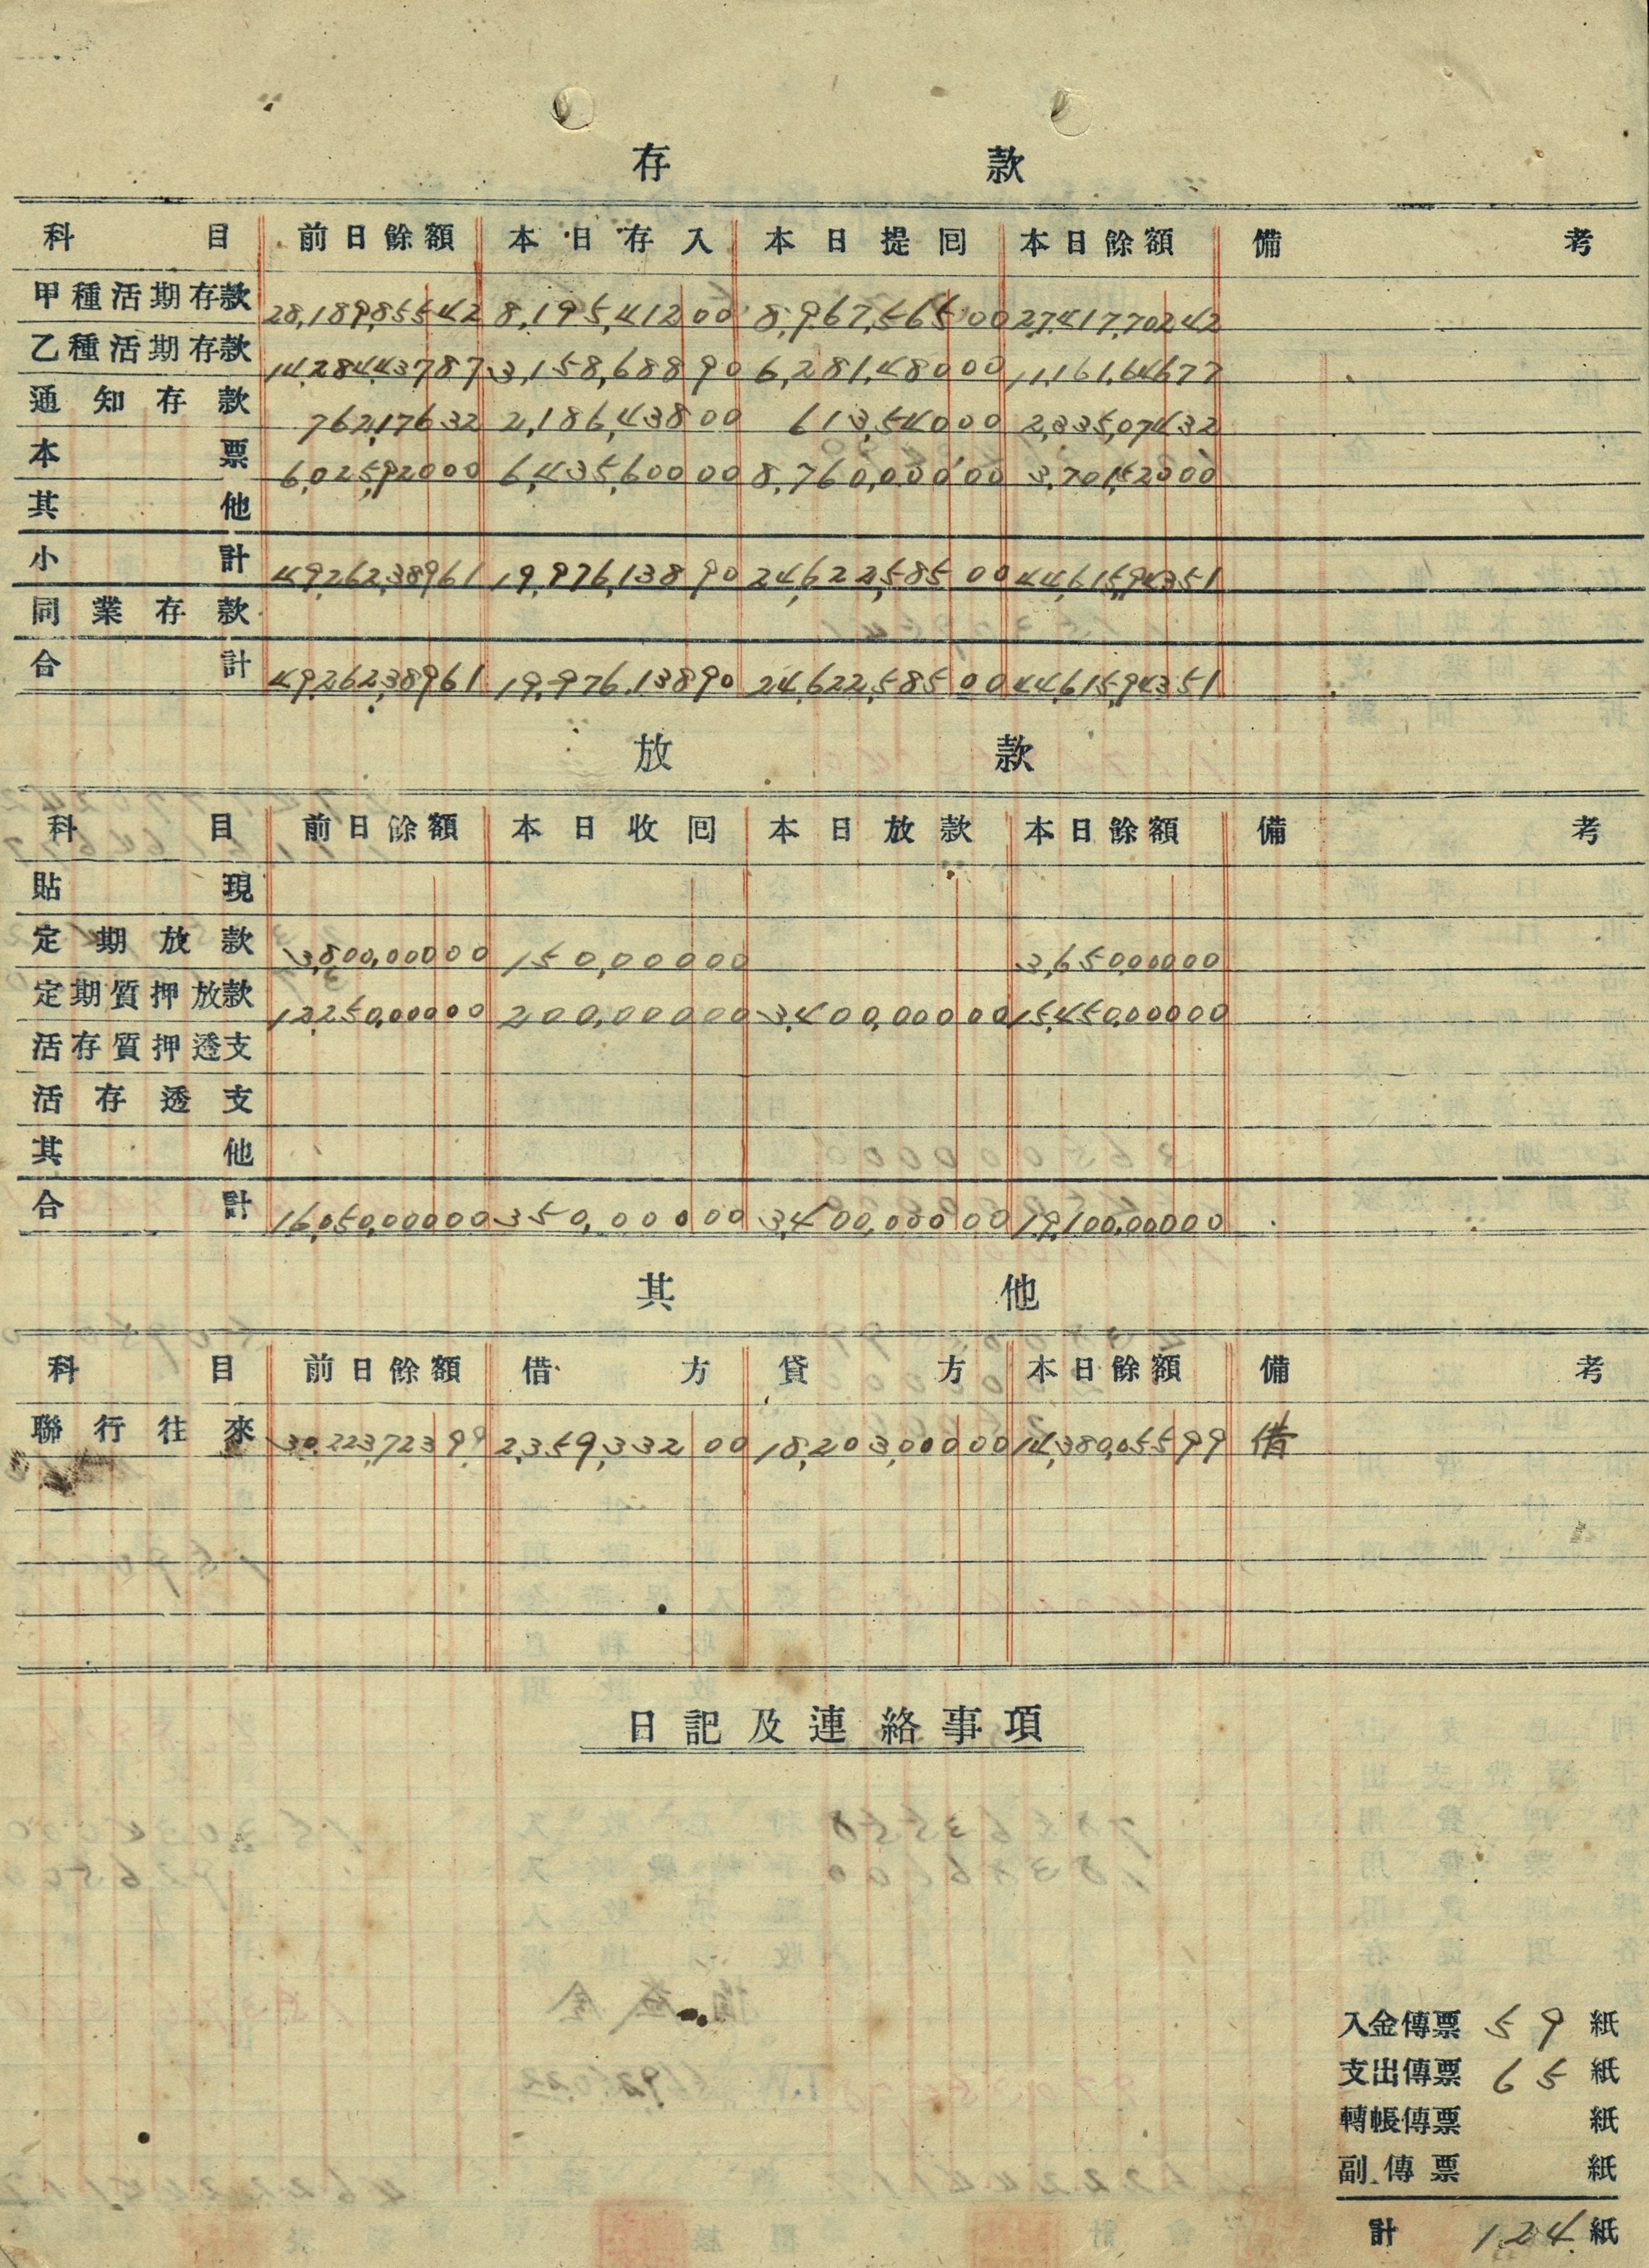 存款
科目 前日餘額 本日存入 本日提回 本日餘額 備考
甲種活期存款 28,189,855 42 8,195,412 00 8,967,565 00 27,417,702 42
乙種活期存款 14,284,437 87 3,158,688 90 6,281,480 00 11,161,646 77
通知存款 762,176 32 2,186,438 00 613,540 00 2,335,074 32
本票 6,025,920 00 6,435,600 00 8,760,000 00 3,701,520 00
其他
小計 49,262,389 61 19,976,138 90 24,622,585 00 44,615,943 51
同業存款
合計 49,262,389 61 19,976,138 90 24,622,585 00 44,615,943 51
放款
科目 前日餘額 本日收回 本日放款 本日餘額 備考
貼現
定期放款 3,800,000 00 150,000 00 3,650,000 00
定期質押放款 12,250,000 00 200,000 00 3,400,000 00 15,450,000 00
活存質押透支
活存透支
其他
合計 16,050,000 00 350,000 00 3,400,000 00 19,100,000 00
其他
科目 前日餘額 借方 貸方 本日餘額 備考
聯行往來 30,223,723 99 2,359,332 00 18,203,000 00 14,380,055 99 借
日記及連絡事項
入金傳票 59 紙
支出傳票 65 紙
轉帳傳票 紙
副傳票 紙
計 124 紙